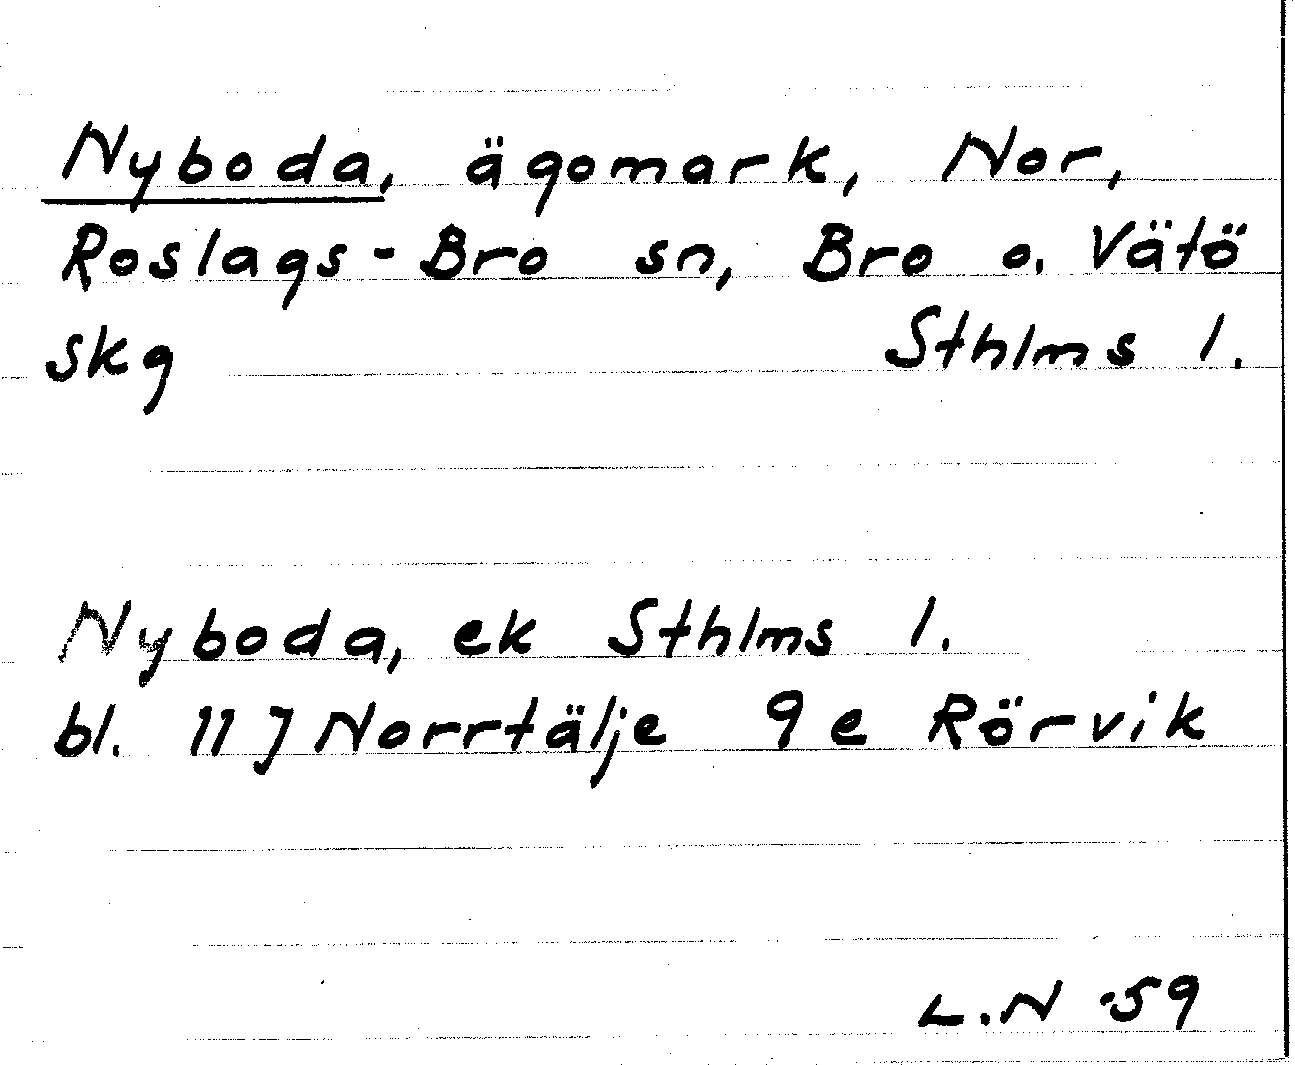 Nyboda, ägomark, Nor,
Roslags-Bro sn, Bro o. Vätö
skg Sthlms l.
Nyboda, ek Sthlms l.
bl. 11 J Norrtälje 9e Rörvik
L.N -59